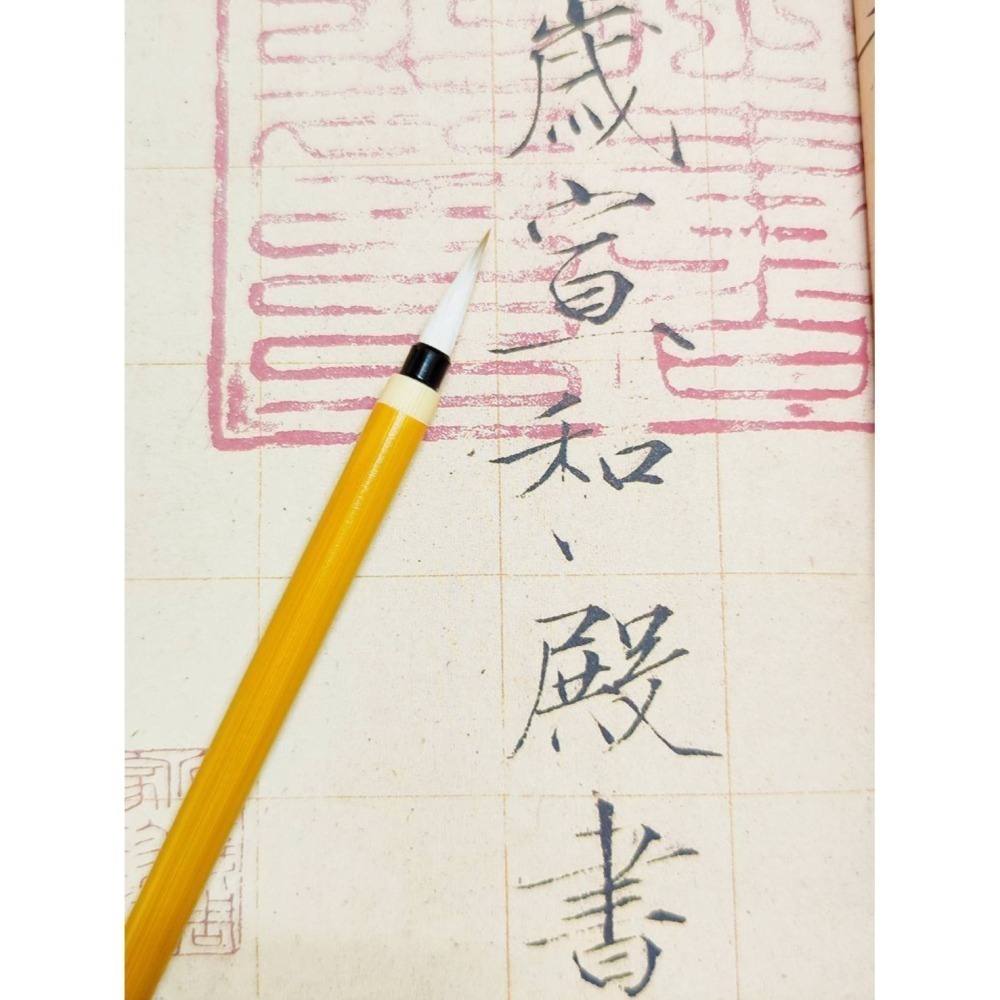 歲宣和殿書